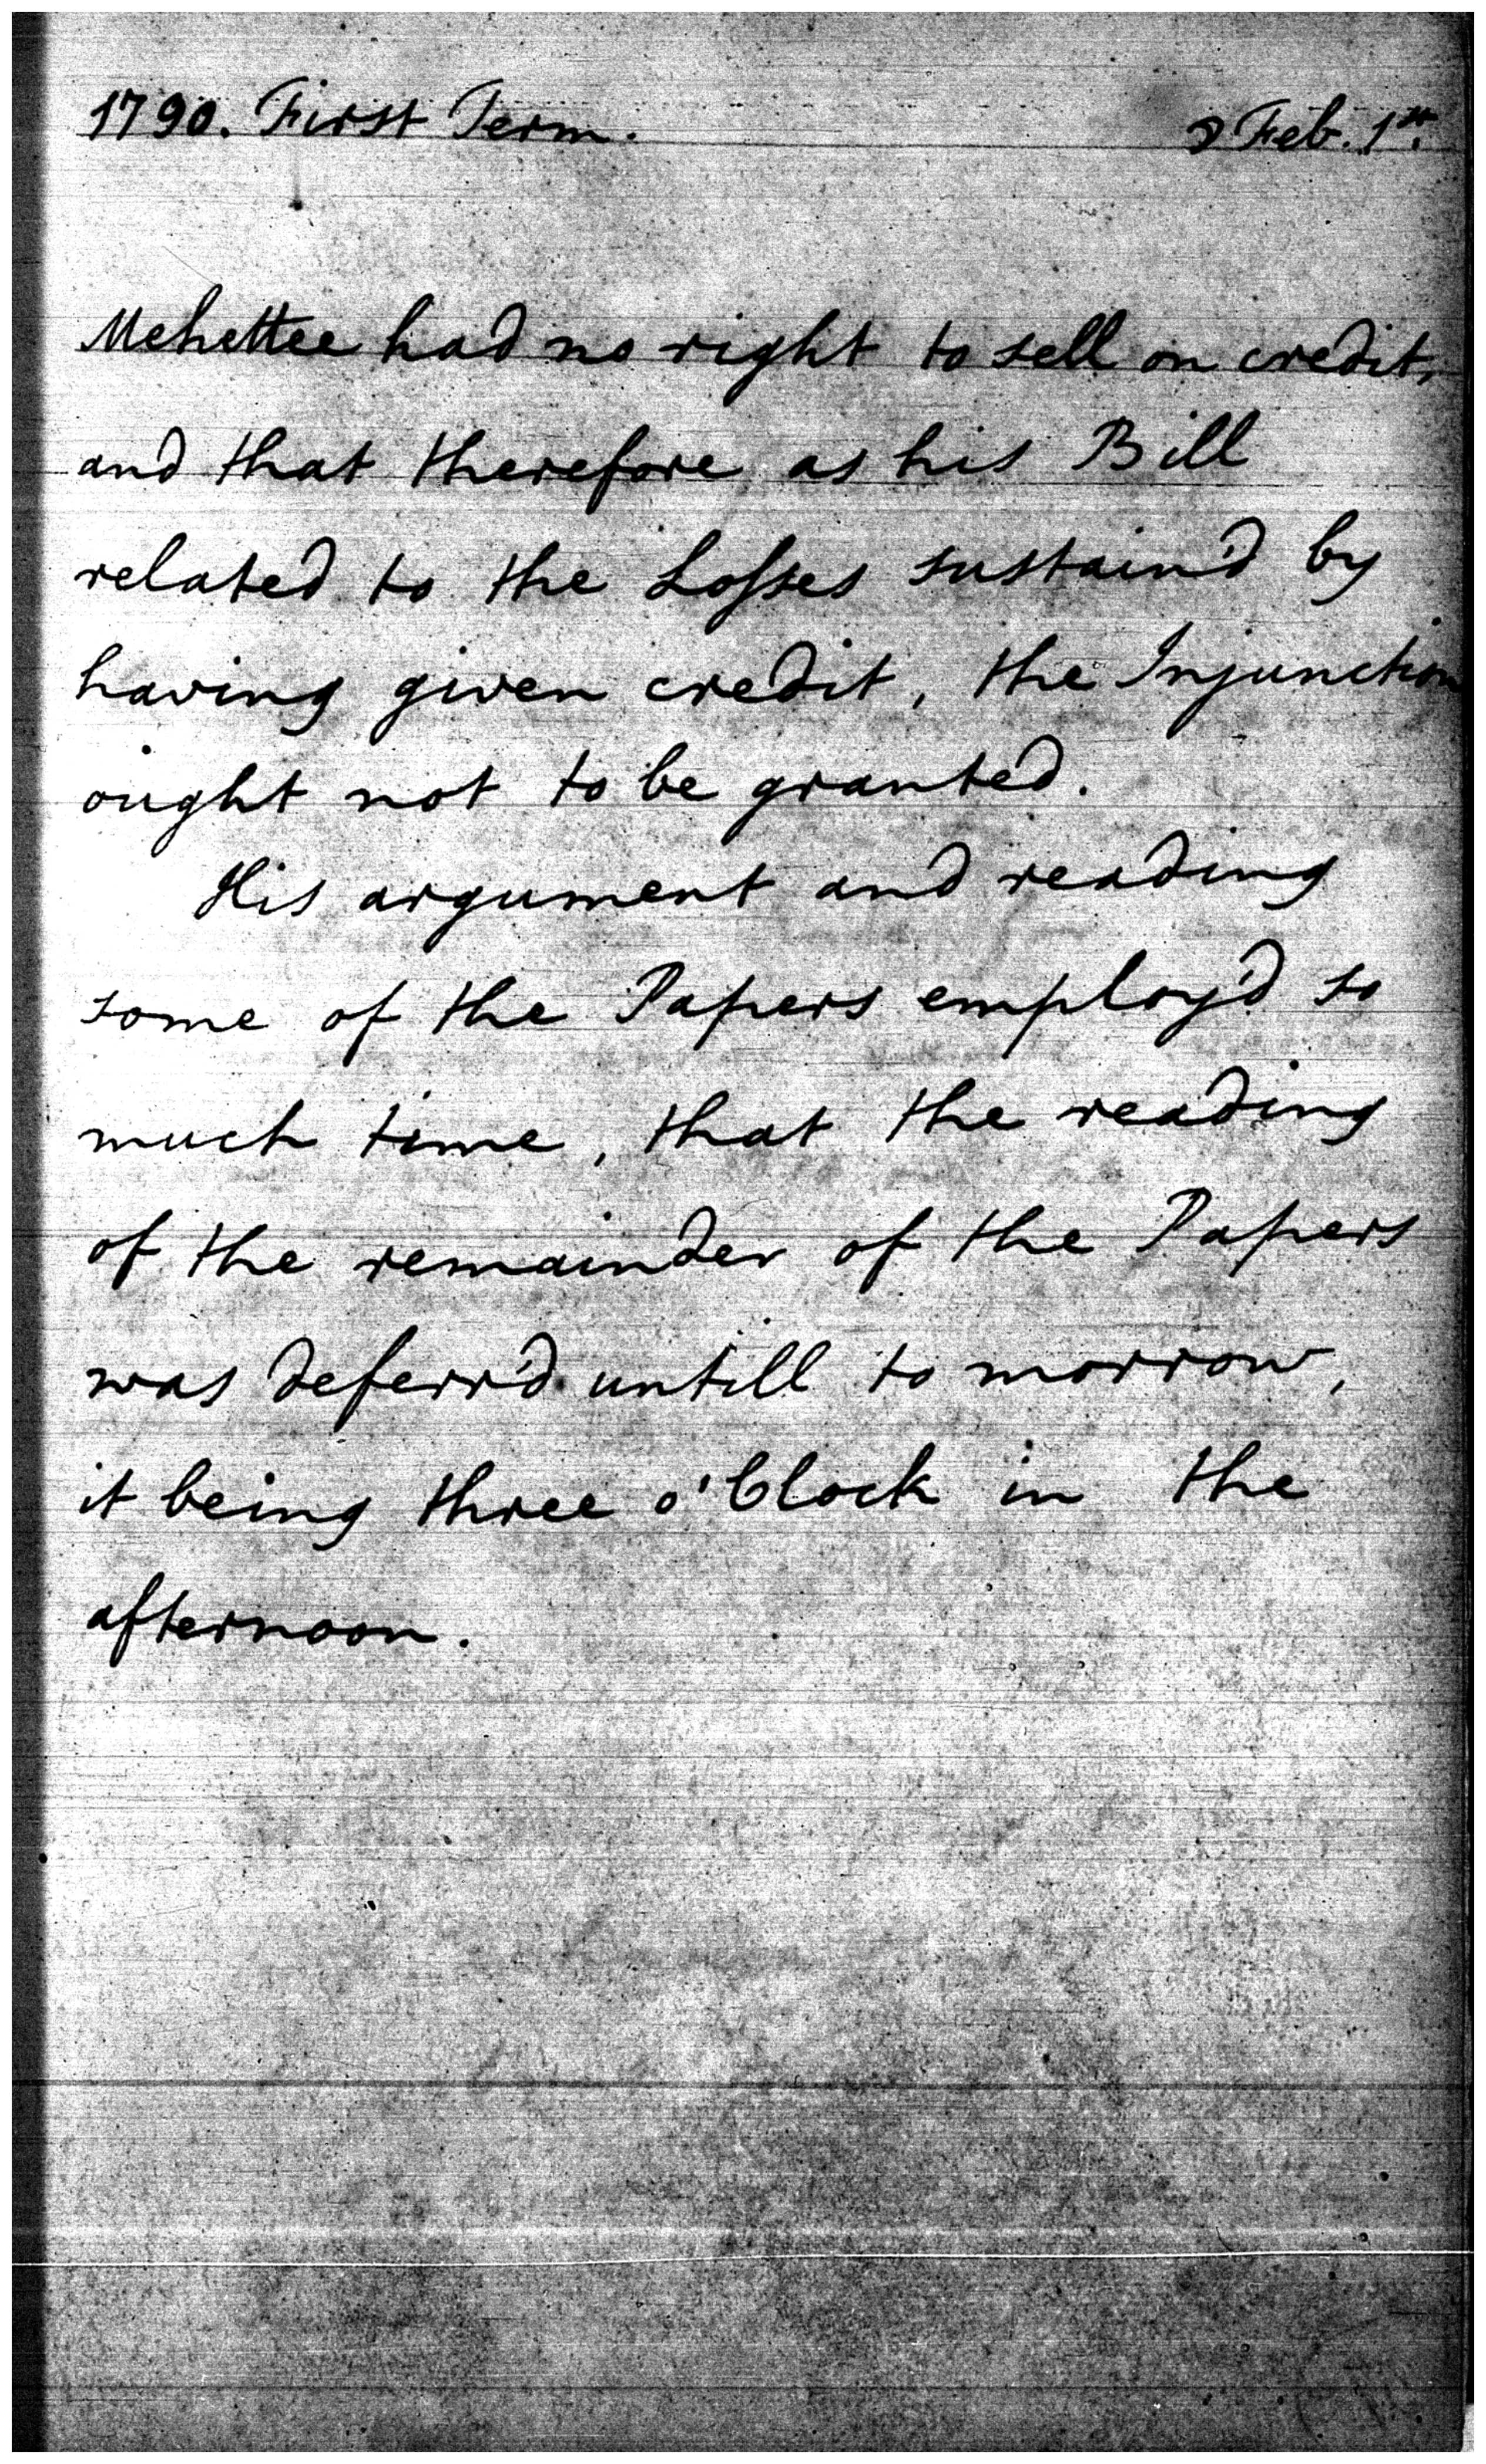 1790. First Term. Feb. 1st.
Mehettee had no right to sell on credit,
and that therefore as his Bill
related to the Losses sustain'd by
having given credit, the Injunction
ought not to be granted.
His argument and reading
some of the Papers employ'd so
much time, that the reading
of the remainder of the Papers
was deferr'd untill to morrow,
it being three o'Clock in the
afternoon.